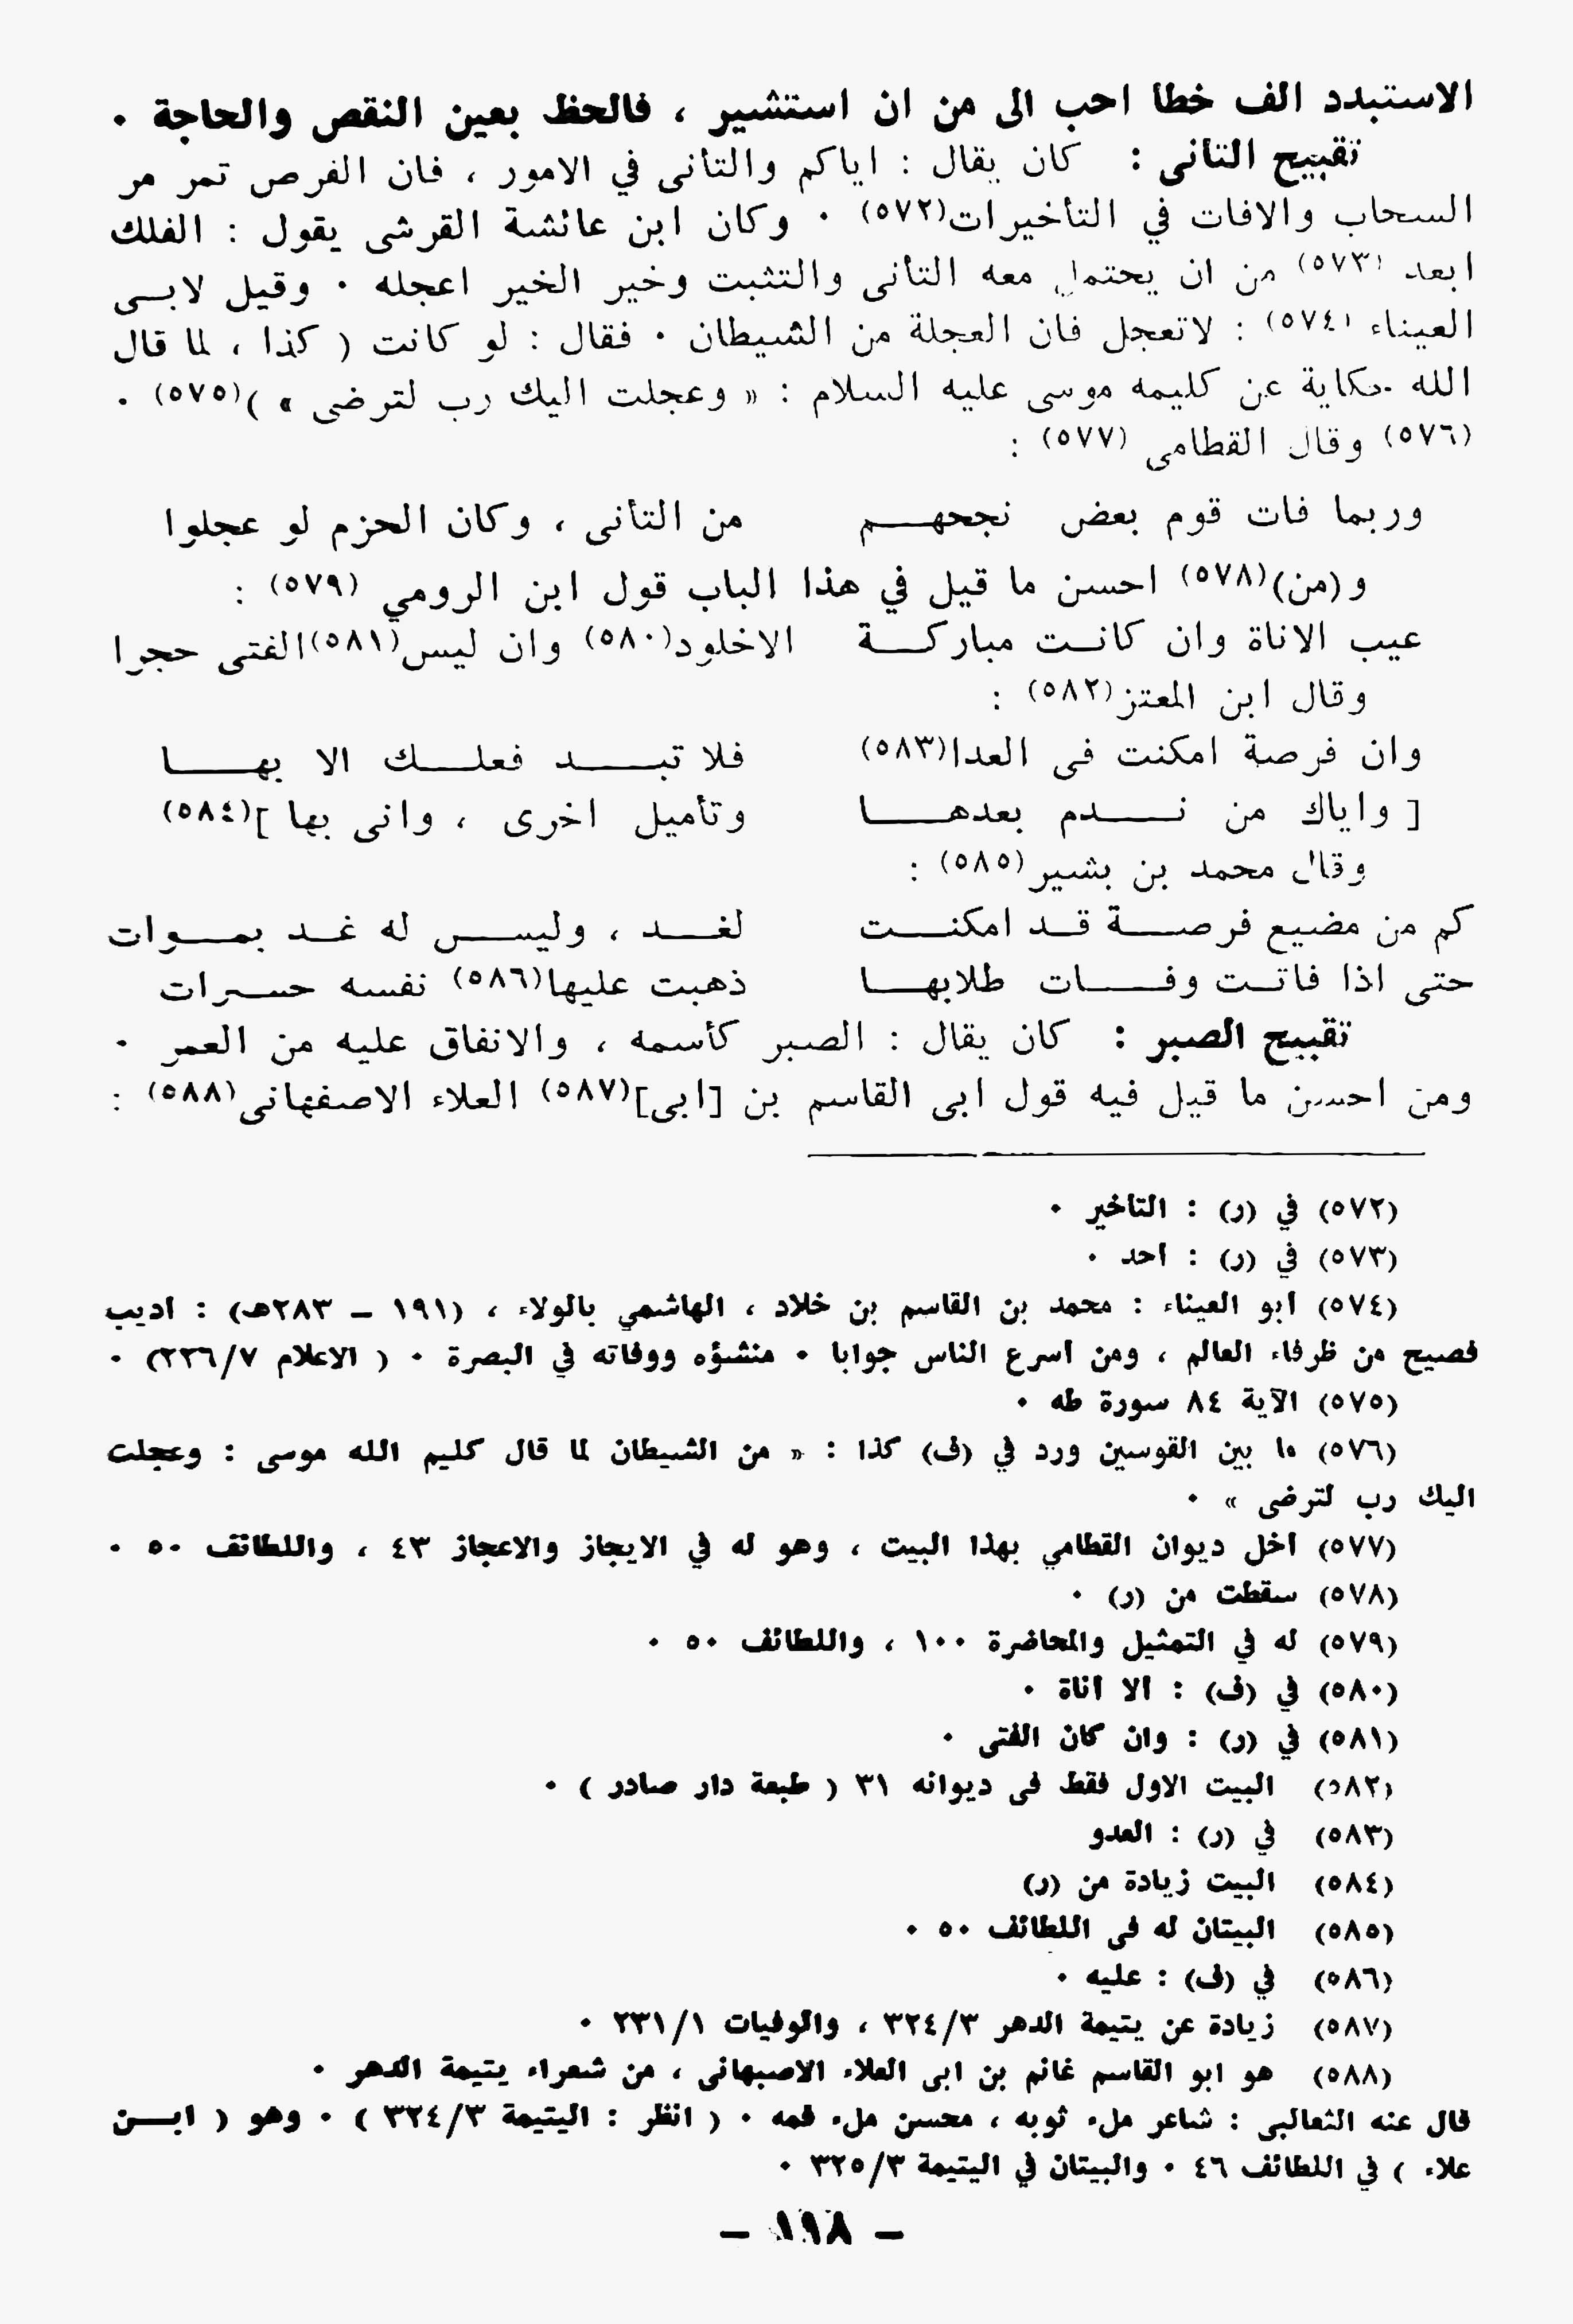 الاستبدد الف خطا احب الى من ان استشير ، فالحظ بعين النقص والحاجة ٠
تقبيح التأنى : كان يقال : اياكم والتأنى في الامور ، فان الفرص تمر مر
السحاب والافات في التأخيرات(٥٧٢) ٠ وكان ابن عائشة القرشى يقول : الفلك
ابعد (٥٧٣) من ان يحتمل معه التأنى والتثبت وخير الخير اعجله ٠ وقيل لابــى
العيناء (٥٧٤) : لاتعجل فان العجلة من الشيطان ٠ فقال : لو كانت ( كذا ، لما قال
الله حكاية عن كليمه موسى عليه السلام : « وعجلت اليك رب لترضى » )(٥٧٥) ٠
(٥٧٦) وقال القطامى (٥٧٧) :
وربما فات قوم بعض نجحهــــم من التأنى ، وكان الحزم لو عجلوا
و(من)(٥٧٨) احسن ما قيل في هذا الباب قول ابن الرومي (٥٧٩) :
عيب الاناة وان كانــت مباركــــة الاخلود(٥٨٠) وان ليس(٥٨١)الفتى حجرا
وقال ابن المعتز(٥٨٢) :
وان فرصة امكنت فى العدا(٥٨٣) فلا تبـــــد فعلــــك الا بهــــا
[ واياك من نـــــدم بعدهــــــا وتأميل اخرى ، وانى بها ](٥٨٤)
وقال محمد بن بشير(٥٨٥) :
كم من مضيع فرصــــة قــد امكنــــت لغــــد ، وليـــس له غــد بمــوات
حتى اذا فاتــت وفـــــات طلابهــــا ذهبت عليها(٥٨٦) نفسه حسـرات
تقبيح الصبر : كان يقال : الصبر كأسمه ، والانفاق عليه من العمر ٠
ومن احسن ما قيل فيه قول ابى القاسم بن [ابى](٥٨٧) العلاء الاصفهانى(٥٨٨) :
(٥٧٢) في (ر) : التأخير ٠
(٥٧٣) في (ر) : أحد ٠
(٥٧٤) أبو العيناء : محمد بن القاسم بن خلاد ، الهاشمي بالولاء ، (١٩١ – ٢٨٣هـ) : اديب
فصيح من ظرفاء العالم ، ومن أسرع الناس جوابا ٠ منشؤه ووفاته في البصرة ٠ ( الاعلام ٢٢٦/٧) ٠
(٥٧٥) الآية ٨٤ سورة طه ٠
(٥٧٦) ما بين القوسين ورد في (ف) كذا : « من الشيطان لما قال كليم الله موسى : وعجلت
اليك رب لترضى » ٠
(٥٧٧) أخل ديوان القطامي بهذا البيت ، وهو له في الايجاز والاعجاز ٤٣ ، واللطائف ٥٠ ٠
(٥٧٨) سقطت من (ر) ٠
(٥٧٩) له في التمثيل والمحاضرة ١٠٠ ، واللطائف ٥٠ ٠
(٥٨٠) في (ف) : الا أناة ٠
(٥٨١) في (ر) : وان كان الفتى ٠
(٥٨٢) البيت الاول فقط فى ديوانه ٣١ ( طبعة دار صادر ) ٠
(٥٨٣) في (ر) : العدو
(٥٨٤) البيت زيادة من (ر)
(٥٨٥) البيتان له فى اللطائف ٥٠ ٠
(٥٨٦) في (ف) : عليه ٠
(٥٨٧) زيادة عن يتيمة الدهر ٣٢٤/٣ ، والوفيات ٢٣١/١ ٠
(٥٨٨) هو ابو القاسم غانم بن ابى العلاء الاصبهانى ، من شعراء يتيمة الدهر ٠
قال عنه الثعالبى : شاعر ملء ثوبه ، محسن ملء فمه ٠ ( انظر : اليتيمة ٣٢٤/٣ ) ٠ وهو ( ابــن
علاء ) في اللطائف ٤٦ ٠ والبيتان في اليتيمة ٣٢٥/٣ ٠
– ١٩٨ –